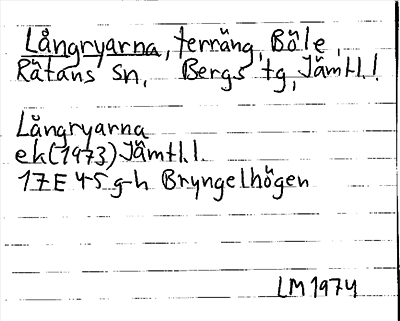 Långryarna, terräng, Böle,
Rätans sn, Bergs tg, Jämtl.l
Långryarna
ek (1973) Jämtl.l.
17E 4-5 g-h Bryngelhögen
LM 1974